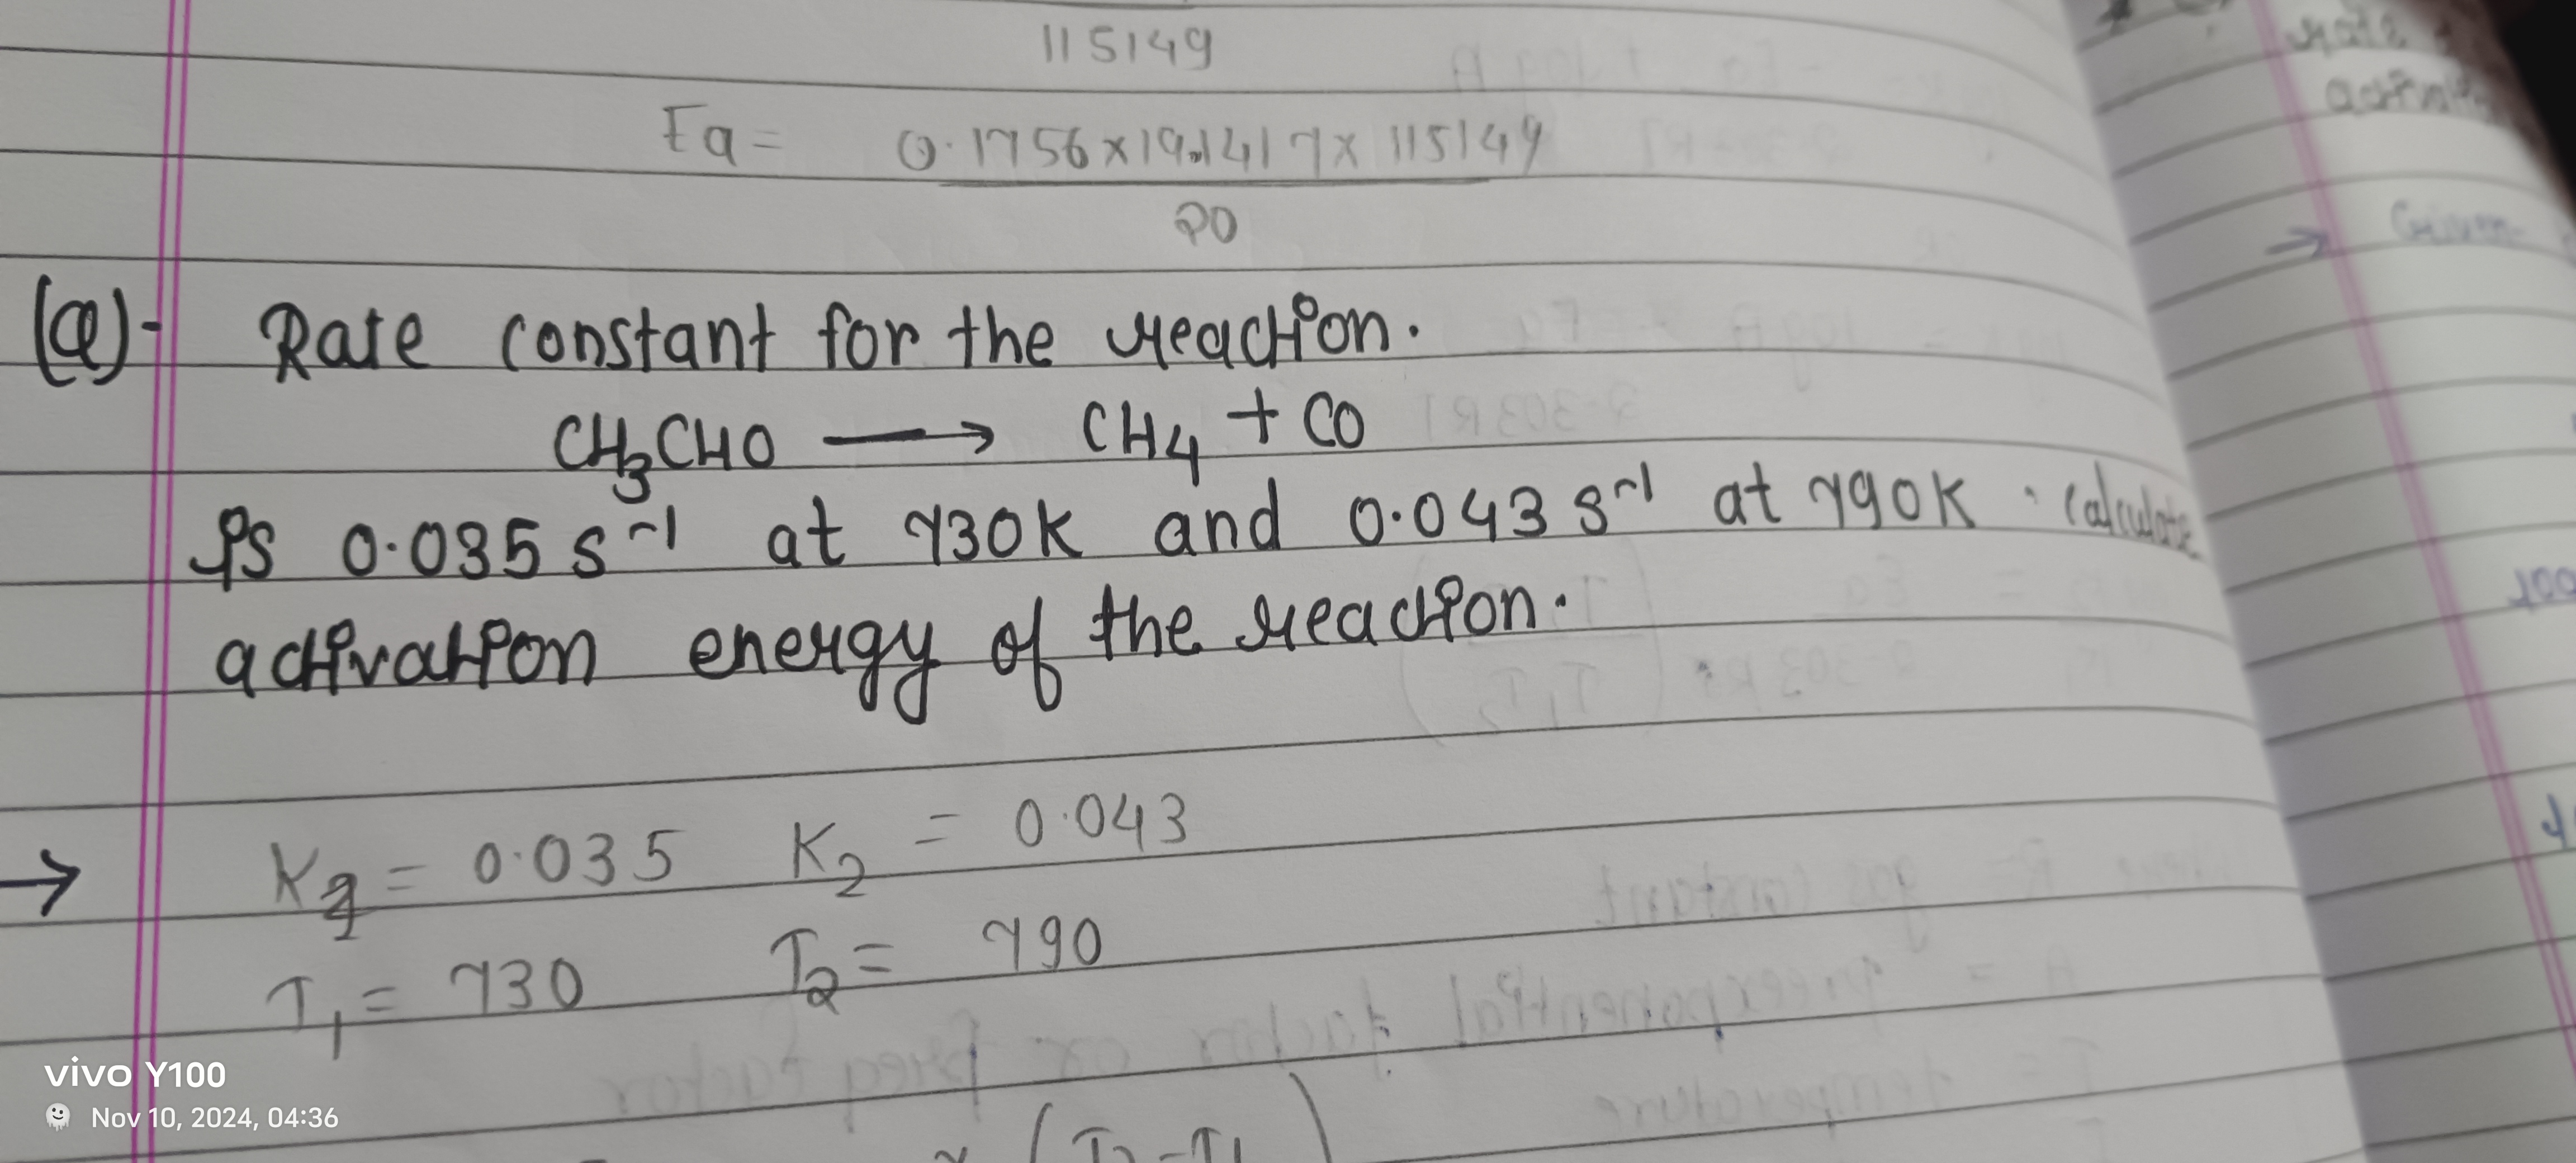 115149
Ea = 0.1756 x 19.1417 x 115149
20
(Q)- Rate constant for the reaction.
CH3CHO → CH4 + CO
is 0.035 s⁻¹ at 730K and 0.043 s⁻¹ at 790K . calculate
activation energy of the reaction.
→ K1 = 0.035 K2 = 0.043
T1 = 730 T2 = 790
(T2-T1)
rate
Given
vivo Y100
Nov 10, 2024, 04:36